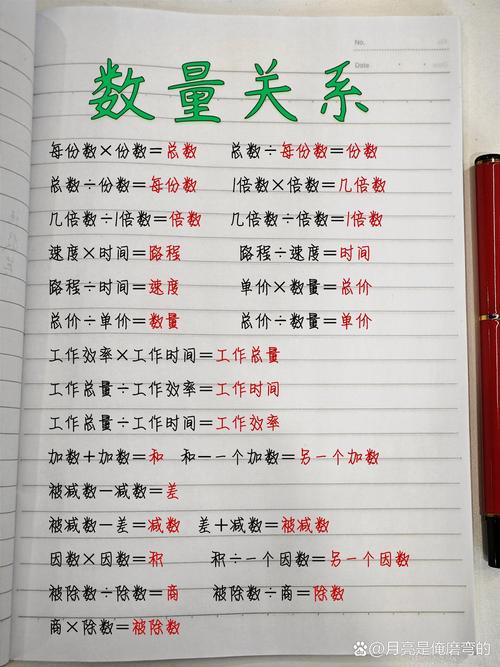 No.
Date
数量关系
每份数×份数=总数 总数÷每份数=份数
总数÷份数=每份数 1倍数×倍数=几倍数
几倍数÷1倍数=倍数 几倍数÷倍数=1倍数
速度×时间=路程 路程÷速度=时间
路程÷时间=速度 单价×数量=总价
总价÷单价=数量 总价÷数量=单价
工作效率×工作时间=工作总量
工作总量÷工作效率=工作时间
工作总量÷工作时间=工作效率
加数+加数=和 和一一个加数=另一个加数
被减数一减数=差
被减数一差=减数 差+减数=被减数
因数×因数=积 积÷一个因数=另一个因数
被除数÷除数=商 被除数÷商=除数
商×除数=被除数
@月亮是俺磨弯的